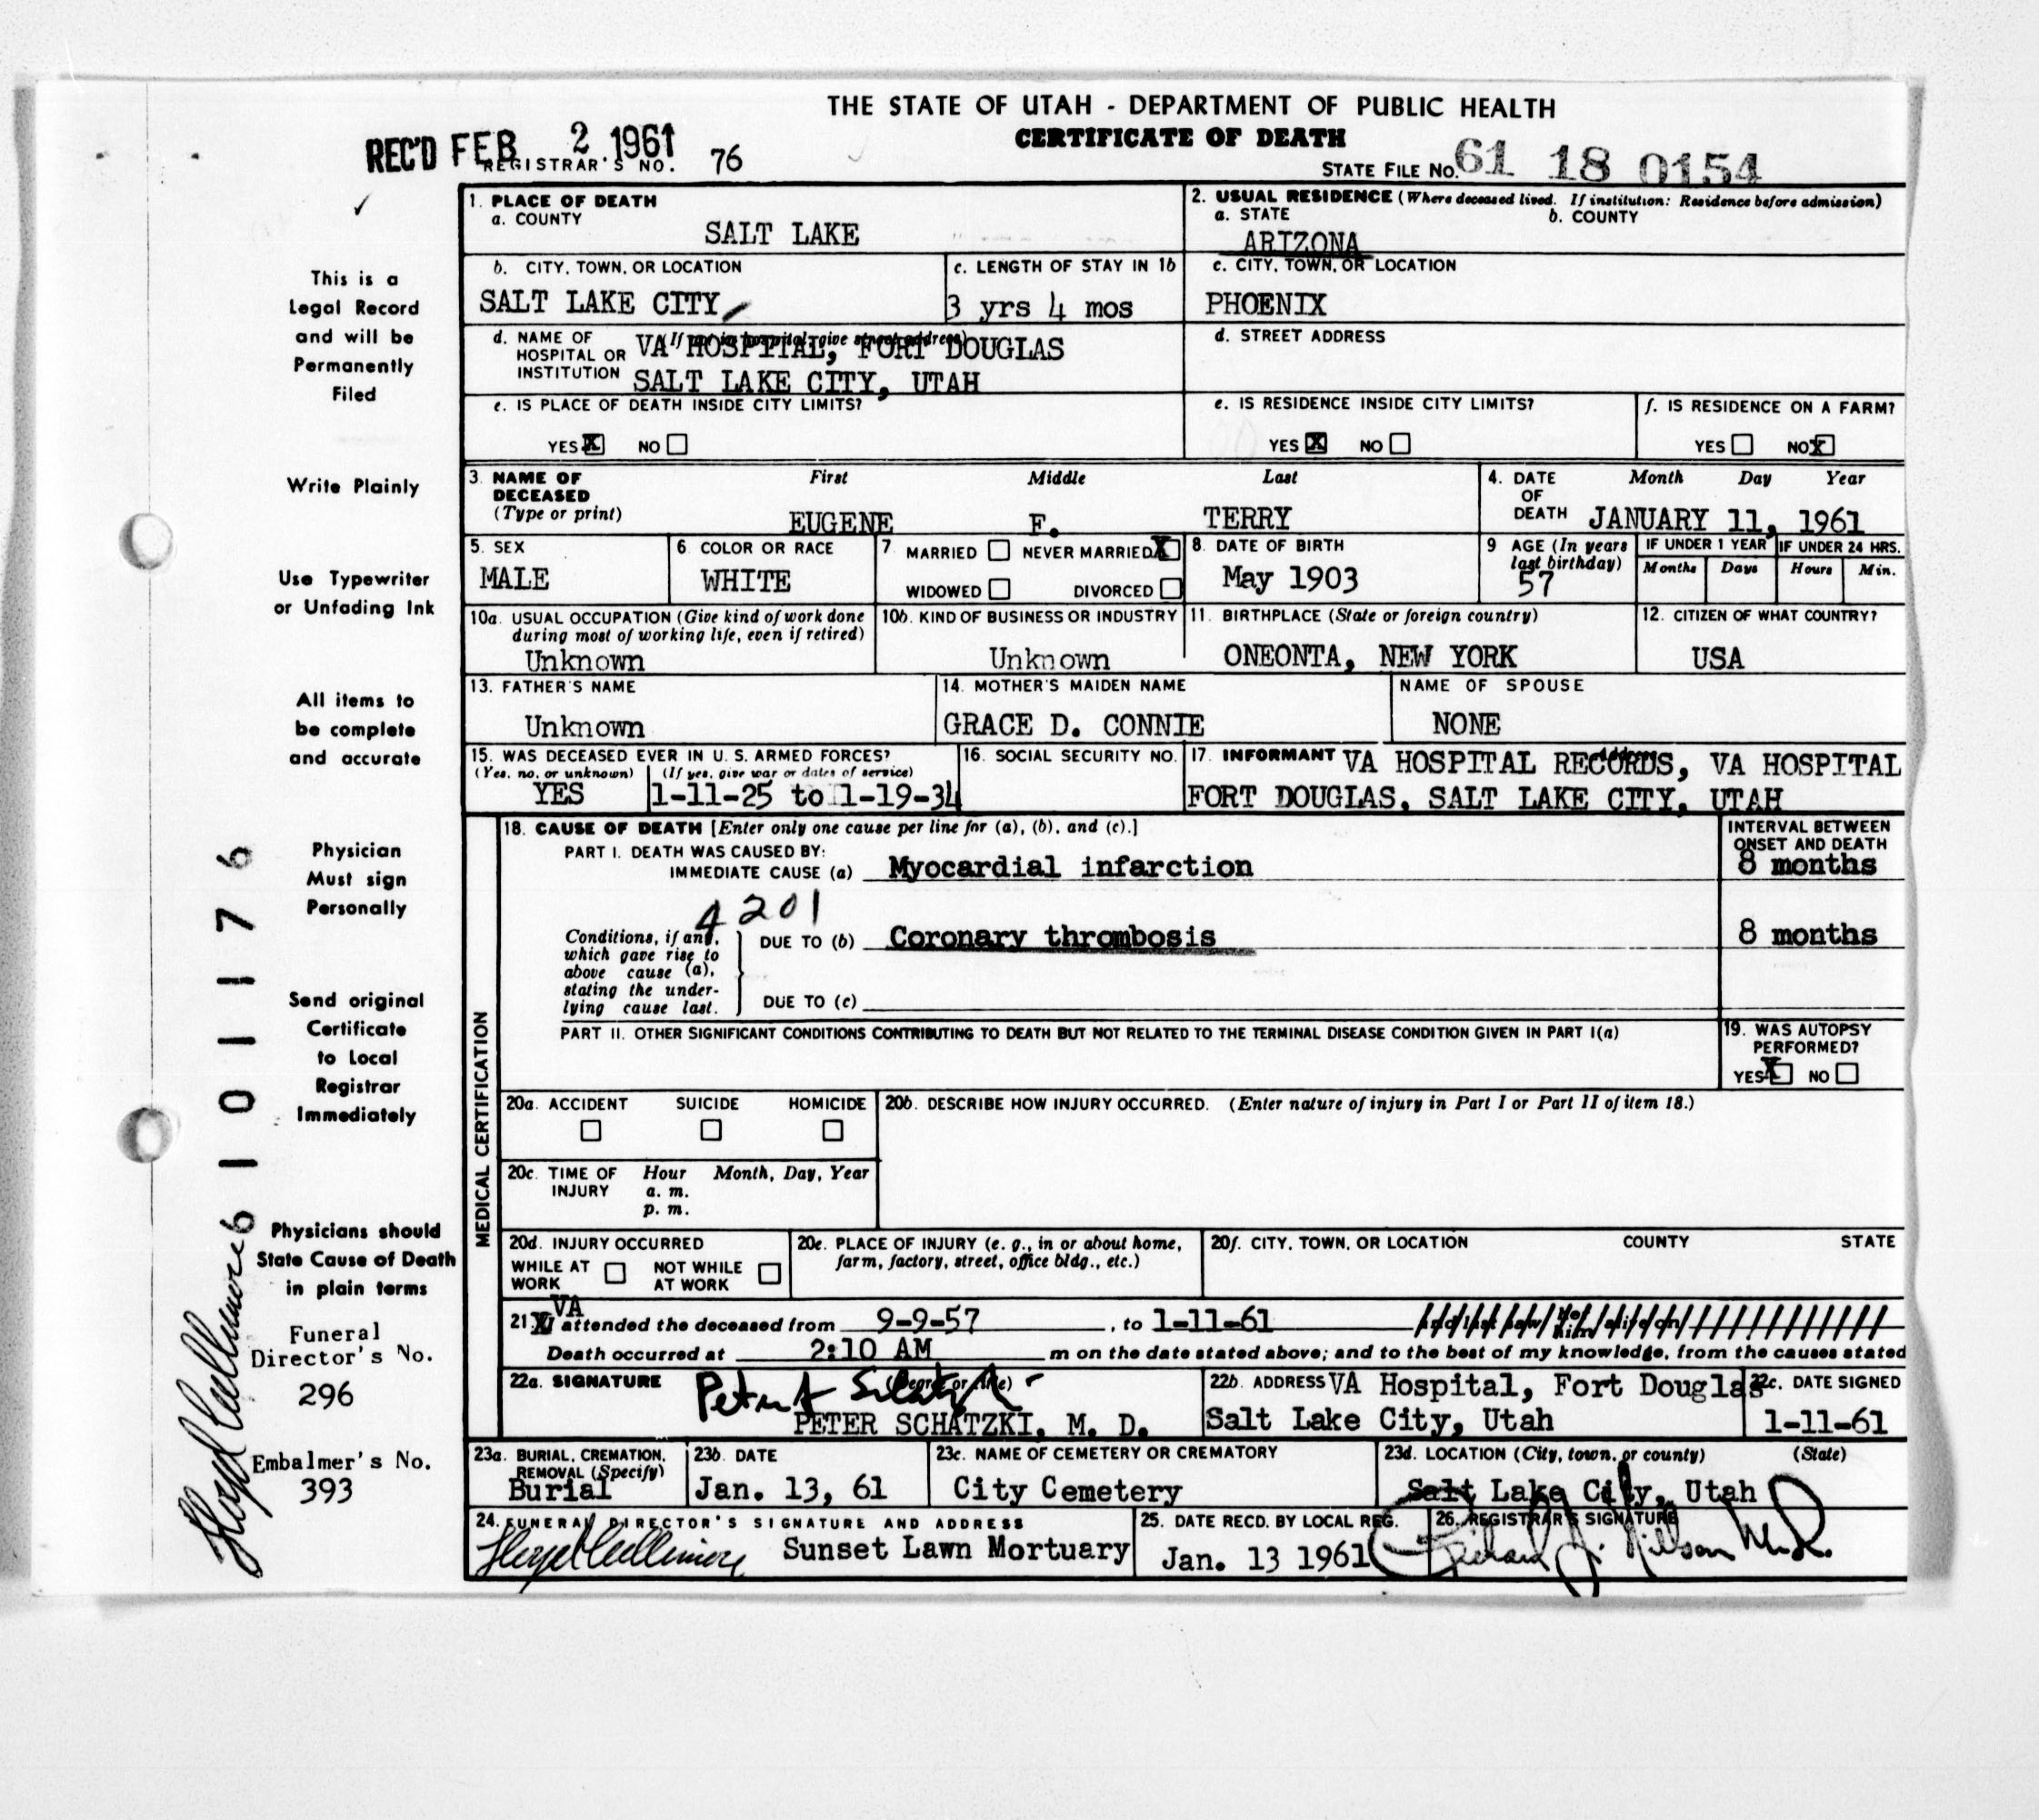 THE STATE OF UTAH - DEPARTMENT OF PUBLIC HEALTH
CERTIFICATE OF DEATH
REC'D FEB 2 1961
REGISTRAR'S NO. 76
STATE FILE NO. 61 18 0154
This is a
Legal Record
and will be
Permanently
Filed
Write Plainly
Use Typewriter
or Unfading Ink
All items to
be complete
and accurate
Physician
Must sign
Personally
Send original
Certificate
to Local
Registrar
Immediately
Physicians should
State Cause of Death
in plain terms
Funeral
Director's No.
296
Embalmer's No.
393
6 1 0 1 1 7 6
1. PLACE OF DEATH
a. COUNTY
SALT LAKE
2. USUAL RESIDENCE (Where deceased lived. If institution: Residence before admission)
a. STATE b. COUNTY
ARIZONA
b. CITY, TOWN, OR LOCATION
SALT LAKE CITY
c. LENGTH OF STAY IN 1b
3 yrs 4 mos
c. CITY, TOWN, OR LOCATION
PHOENIX
d. NAME OF HOSPITAL OR INSTITUTION (If not in hospital, give street address)
VA HOSPITAL, FORT DOUGLAS
SALT LAKE CITY, UTAH
d. STREET ADDRESS
e. IS PLACE OF DEATH INSIDE CITY LIMITS?
YES X NO
e. IS RESIDENCE INSIDE CITY LIMITS?
YES X NO
f. IS RESIDENCE ON A FARM?
YES NO X
3. NAME OF DECEASED (Type or print)
First Middle Last
EUGENE F. TERRY
4. DATE OF DEATH Month Day Year
JANUARY 11, 1961
5. SEX
MALE
6. COLOR OR RACE
WHITE
7. MARRIED NEVER MARRIED X
WIDOWED DIVORCED
8. DATE OF BIRTH
May 1903
9 AGE (In years last birthday)
57
IF UNDER 1 YEAR
Months Days
IF UNDER 24 HRS.
Hours Min.
10a. USUAL OCCUPATION (Give kind of work done
during most of working life, even if retired)
Unknown
10b. KIND OF BUSINESS OR INDUSTRY
Unknown
11. BIRTHPLACE (State or foreign country)
ONEONTA, NEW YORK
12. CITIZEN OF WHAT COUNTRY?
USA
13. FATHER'S NAME
Unknown
14. MOTHER'S MAIDEN NAME
GRACE D. CONNIE
NAME OF SPOUSE
NONE
15. WAS DECEASED EVER IN U. S. ARMED FORCES?
(Yes, no, or unknown) (If yes, give war or dates of service)
YES 1-11-25 to 1-19-34
16. SOCIAL SECURITY NO.
17. INFORMANT Address
VA HOSPITAL RECORDS, VA HOSPITAL
FORT DOUGLAS, SALT LAKE CITY, UTAH
MEDICAL CERTIFICATION
18. CAUSE OF DEATH [Enter only one cause per line for (a), (b), and (c).]
PART I. DEATH WAS CAUSED BY:
IMMEDIATE CAUSE (a) Myocardial infarction
INTERVAL BETWEEN
ONSET AND DEATH
8 months
4201
Conditions, if any,
which gave rise to
above cause (a),
stating the under-
lying cause last.
DUE TO (b) Coronary thrombosis
8 months
DUE TO (c)
PART II. OTHER SIGNIFICANT CONDITIONS CONTRIBUTING TO DEATH BUT NOT RELATED TO THE TERMINAL DISEASE CONDITION GIVEN IN PART I(a)
19. WAS AUTOPSY
PERFORMED?
YES X NO
20a. ACCIDENT SUICIDE HOMICIDE
20b. DESCRIBE HOW INJURY OCCURRED. (Enter nature of injury in Part I or Part II of item 18.)
20c. TIME OF INJURY Hour Month, Day, Year
a. m.
p. m.
20d. INJURY OCCURRED
WHILE AT WORK NOT WHILE AT WORK
20e. PLACE OF INJURY (e. g., in or about home,
farm, factory, street, office bldg., etc.)
20f. CITY, TOWN, OR LOCATION COUNTY STATE
VA
21. I attended the deceased from 9-9-57, to 1-11-61 and last saw her him alive on
Death occurred at 2:10 AM m on the date stated above; and to the best of my knowledge, from the causes stated
22a. SIGNATURE (Degree or title)
PETER SCHATZKI, M. D.
22b. ADDRESS VA Hospital, Fort Douglas
Salt Lake City, Utah
22c. DATE SIGNED
1-11-61
23a. BURIAL, CREMATION,
REMOVAL (Specify)
Burial
23b. DATE
Jan. 13, 61
23c. NAME OF CEMETERY OR CREMATORY
City Cemetery
23d. LOCATION (City, town, or county) (State)
Salt Lake City, Utah
24. FUNERAL DIRECTOR'S SIGNATURE AND ADDRESS
Sunset Lawn Mortuary
25. DATE RECD. BY LOCAL REG.
Jan. 13 1961
26. REGISTRAR'S SIGNATURE